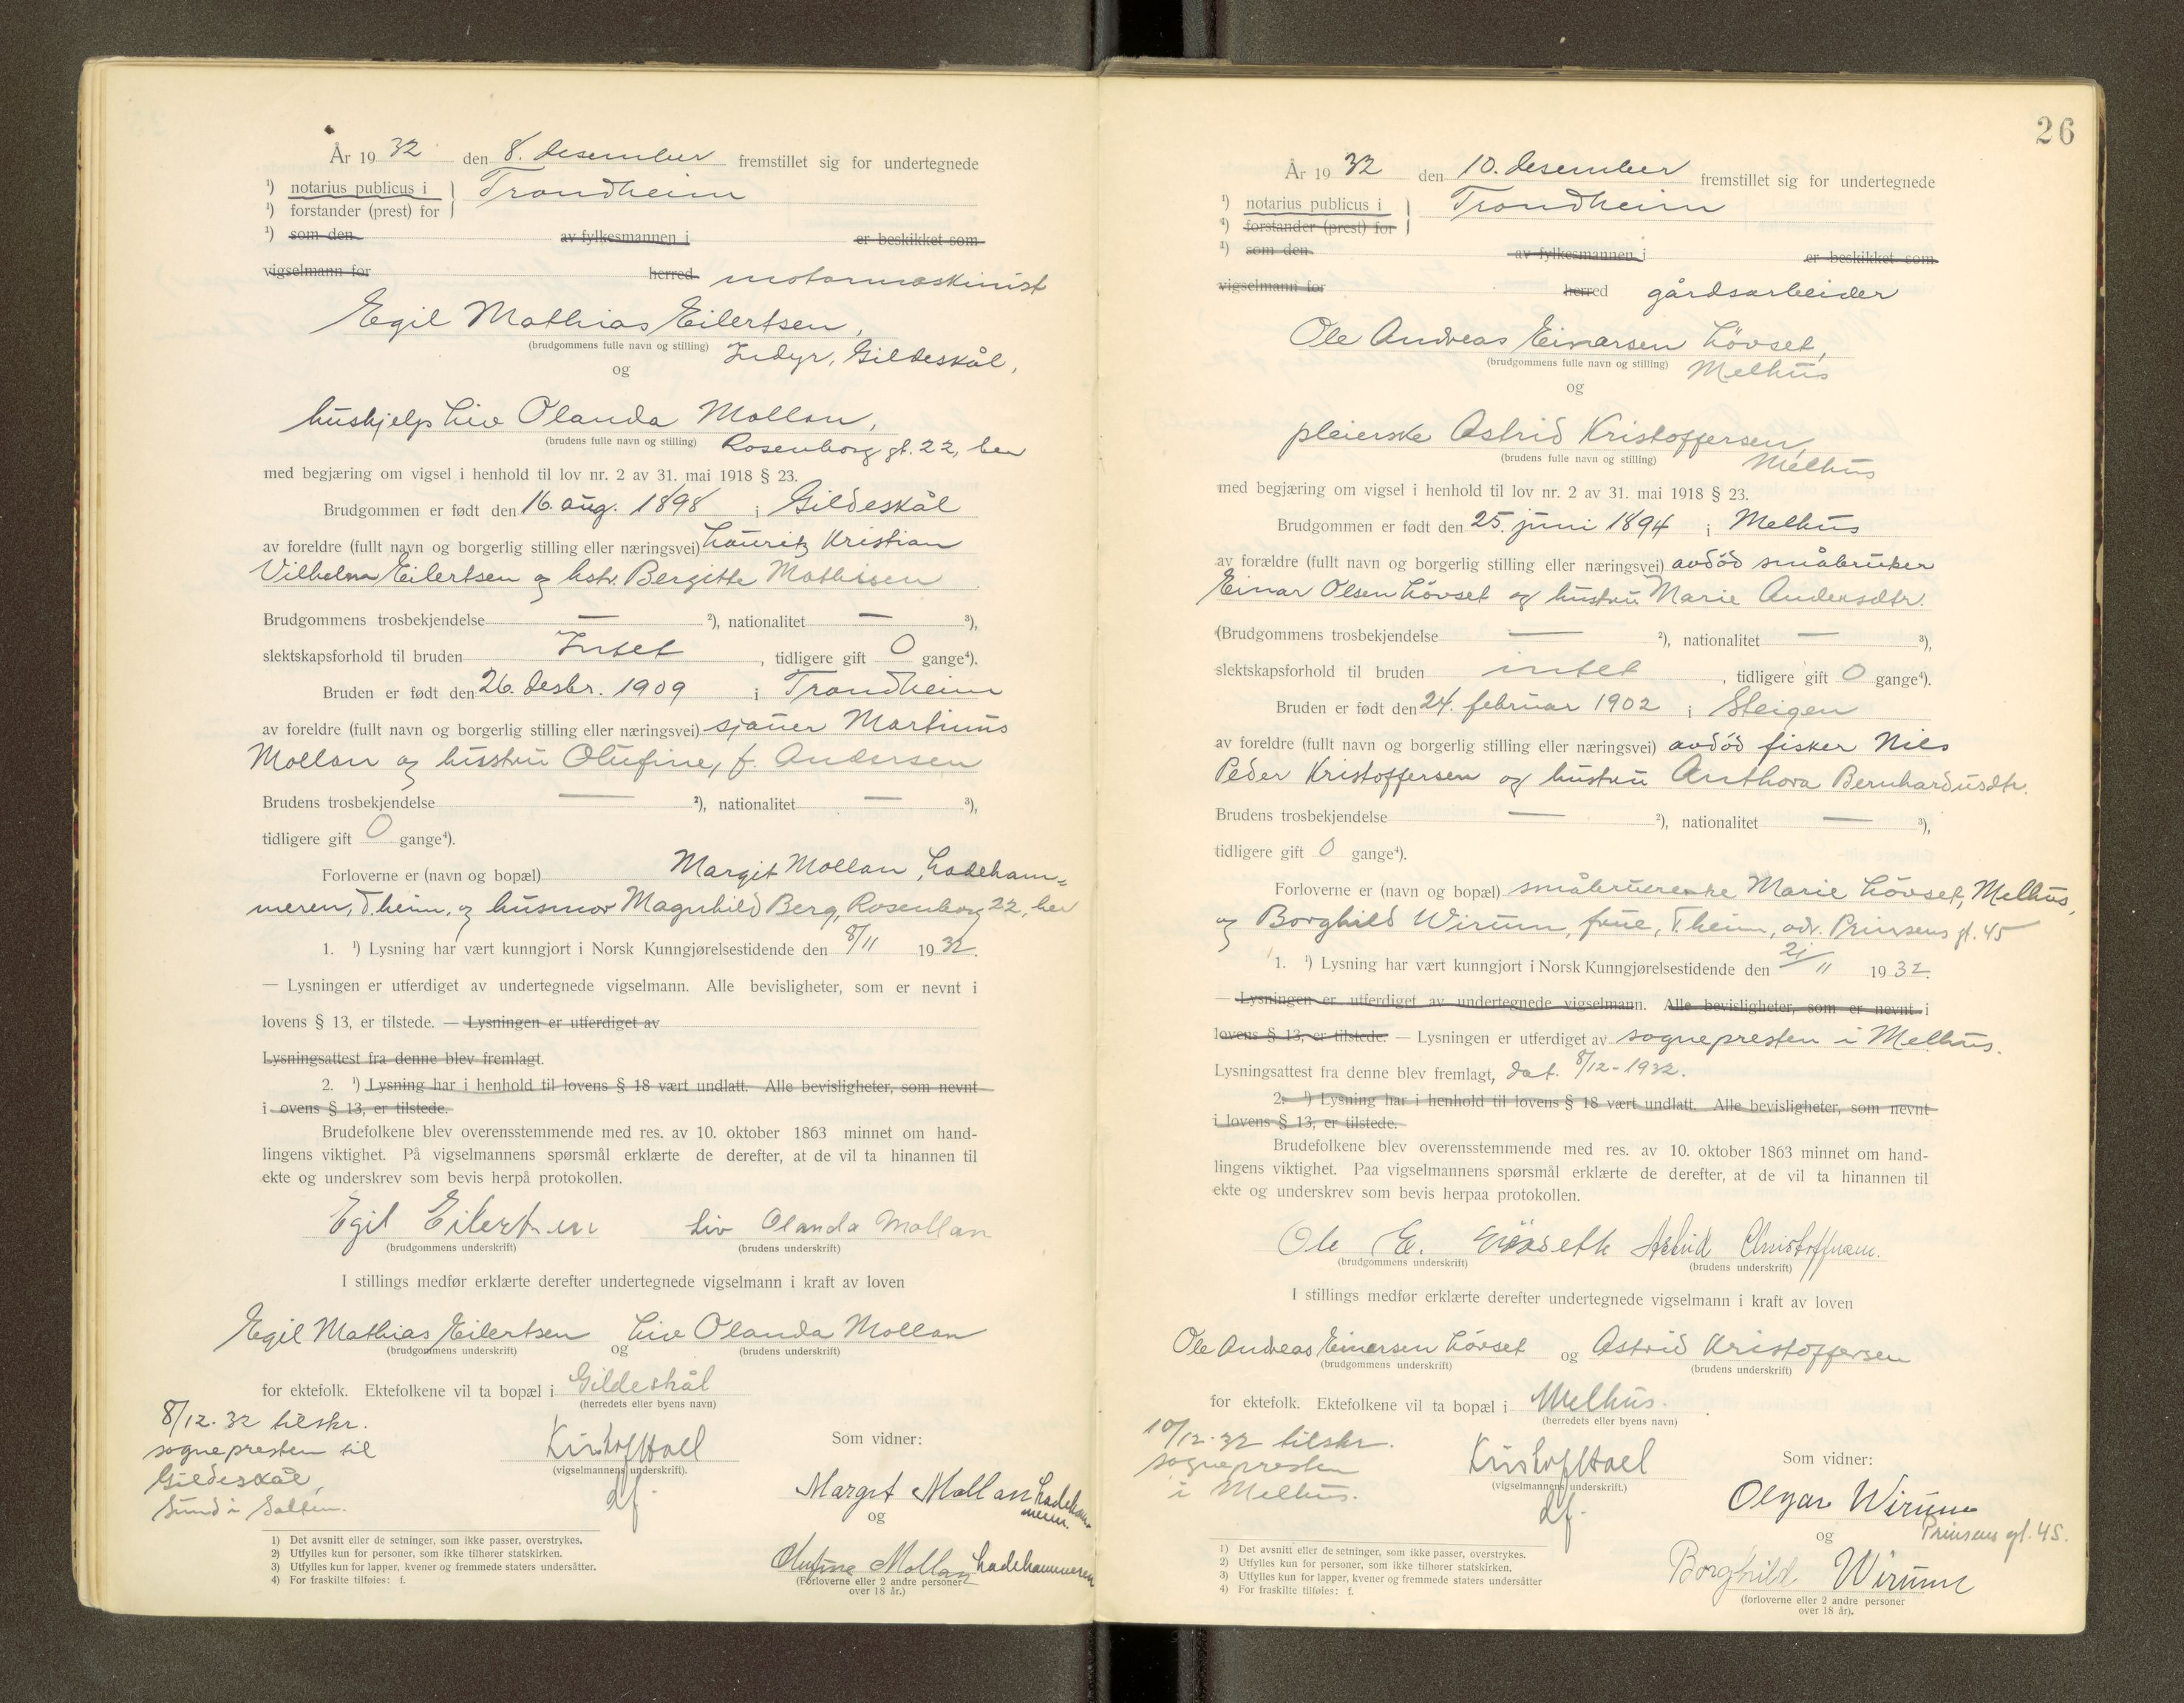 År 1932 den 8. desember fremstillet sig for undertegnede
¹) notarius publicus i } Trondheim
¹) forstander (prest) for
¹) som den av fylkesmannen i er beskikket som
vigselmann for herred motormaskinist
Egil Mathias Eilertsen,
(brudgommens fulle navn og stilling) Indyr, Gildeskål,
og
hushjelp Liv Olanda Mollan,
(brudens fulle navn og stilling) Rosenborg gt. 22, her
med begjæring om vigsel i henhold til lov nr. 2 av 31. mai 1918 § 23.
Brudgommen er født den 16. aug. 1898 i Gildeskål
av foreldre (fullt navn og borgerlig stilling eller næringsvei) Lauritz Kristian
Vilhelm Eilertsen og hstr. Bergitte Mathisen
Brudgommens trosbekjendelse — ²), nationalitet — ³),
slektskapsforhold til bruden Intet, tidligere gift 0 gange⁴).
Bruden er født den 26. desbr. 1909 i Trondheim
av foreldre (fullt navn og borgerlig stilling eller næringsvei) sjauer Martinus
Mollan og hustru Olufine, f. Andersen
Brudens trosbekjendelse — ²), nationalitet — ³),
tidligere gift 0 gange⁴).
Forloverne er (navn og bopæl) Margit Mollan, Ladeham=
meren, T.heim, og husmor Magnhild Berg, Rosenborg 22, her
1. ¹) Lysning har vært kunngjort i Norsk Kunngjørelsestidende den 8/11 1932.
— Lysningen er utferdiget av undertegnede vigselmann. Alle bevisligheter, som er nevnt i
lovens § 13, er tilstede. — Lysningen er utferdiget av
Lysningsattest fra denne blev fremlagt.
2. ¹) Lysning har i henhold til lovens § 18 vært undlatt. Alle bevisligheter, som nevnt
i ovens § 13, er tilstede.
Brudefolkene blev overensstemmende med res. av 10. oktober 1863 minnet om hand-
lingens viktighet. På vigselmannens spørsmål erklærte de derefter, at de vil ta hinannen til
ekte og underskrev som bevis herpå protokollen.
Egil Eilertsen Liv Olanda Mollan
(brudgommens underskrift) (brudens underskrift)
I stillings medfør erklærte derefter undertegnede vigselmann i kraft av loven
Egil Mathias Eilertsen og Liv Olanda Mollan
(brudgommens underskrift) (brudens underskrift)
for ektefolk. Ektefolkene vil ta bopæl i Gildeskål
(herredets eller byens navn)
8/12. 32 tilskr.
sognepresten til
Gildeskål,
Sund i Salten.
Kristof Hoel
(vigselmannens underskrift).
df.
Som vidner:
Margit Mollan Ladeham-
meren.
og
Olufine Mollan Ladehammeren
(Forloverne eller 2 andre personer
over 18 år.)
1) Det avsnitt eller de setninger, som ikke passer, overstrykes.
2) Utfylles kun for personer, som ikke tilhører statskirken.
3) Utfylles kun for lapper, kvener og fremmede staters undersåtter.
4) For fraskilte tilføies: f.
26
År 1932 den 10. desember fremstillet sig for undertegnede
¹) notarius publicus i } Trondheim
¹) forstander (prest) for
¹) som den av fylkesmannen i er beskikket som
vigselmann for herred gårdsarbeider
Ole Andreas Einarsen Lövset,
(brudgommens fulle navn og stilling) Melhus
og
pleierske Astrid Kristoffersen,
(brudens fulle navn og stilling) Melhus
med begjæring om vigsel i henhold til lov nr. 2 av 31. mai 1918 § 23.
Brudgommen er født den 25. juni 1894 i Melhus
av forældre (fullt navn og borgerlig stilling eller næringsvei) avdöd småbruker
Einar Olsen Lövset og hustru Marie Andersdtr.
(Brudgommens trosbekjendelse — ²), nationalitet — ³),
slektskapsforhold til bruden intet, tidligere gift 0 gange⁴).
Bruden er født den 24. februar 1902 i Steigen
av foreldre (fullt navn og borgerlig stilling eller næringsvei) avdöd fisker Nils
Peder Kristoffersen og hustru Anthora Bernhardusdtr.
Brudens trosbekjendelse — ²), nationalitet — ³),
tidligere gift 0 gange⁴).
Forloverne er (navn og bopæl) Marie Lövset, Melhus,
og Borghild Wirum, frue, T.heim, adr. Prinsens gt. 45
1. ¹) Lysning har vært kunngjort i Norsk Kunngjørelsestidende den 21/11 1932.
— Lysningen er utferdiget av undertegnede vigselmann. Alle bevisligheter, som er nevnt i
lovens § 13, er tilstede. — Lysningen er utferdiget av sognepresten i Melhus.
Lysningsattest fra denne blev fremlagt, dat. 8/12-1932.
2. ¹) Lysning har i henhold til lovens § 18 vært undlatt. Alle bevisligheter, som nevnt
i lovens § 13, er tilstede.
Brudefolkene blev overensstemmende med res. av 10. oktober 1863 minnet om hand-
lingens viktighet. Paa vigselmannens spørsmål erklærte de derefter, at de vil ta hinannen til
ekte og underskrev som bevis herpaa protokollen.
Ole E. Astrid
(brudgommens underskrift) (brudens underskrift)
I stillings medfør erklærte derefter undertegnede vigselmann i kraft av loven
Ole Andreas Einarsen Lövset og Astrid Kristoffersen
(brudgommens underskrift) (brudens underskrift)
for ektefolk. Ektefolkene vil ta bopæl i Melhus.
(herredets eller byens navn)
10/12. 32 tilskr.
sognepresten
i Melhus.
Kristof Hoel
(vigselmannens underskrift.)
df.
Som vidner:
Olgar Wirum
og Prinsens gt. 45.
Borghild Wirum
(forloverne eller 2 andre personer
over 18 år).
1) Det avsnitt eller de setninger, som ikke passer, overstrykes.
2) Utfylles kun for personer, som ikke tilhører statskirken.
3) Utfylles kun for lapper, kvener og fremmede staters undersåtter
4) For fraskilte tilføies: f.